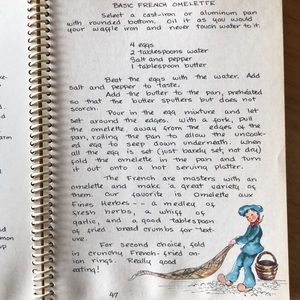 BASIC FRENCH OMELETTE
Select a cast-iron or aluminum pan
with rounded bottom. Oil it as you would
your waffle iron and never touch water to it.
4 eggs
2 tablespoons water
Salt and pepper
1 tablespoon butter
Beat the eggs with the water. Add
salt and pepper to taste.
Add the butter to the pan, preheated
so that the butter sputters but does not
scorch.
Pour in the egg mixture and let
set around the edges. With a fork, pull
the omelette away from the edges of the
pan, rolling the pan to allow the uncook-
ed egg to seep down underneath. When
all the egg is set (just barely set, not dry)
fold the omelette in the pan and turn
it out onto a hot serving platter.
The French are masters with an
omelette and make a great variety of
them. Our favorite is Omelette aux
Fines Herbes -- a medley of
fresh herbs, a whiff of
garlic, and a good tablespoon
of fried bread crumbs for tex-
ture.
For second choice, fold
in crunchy French-fried on-
ion rings. Really good
eating!
47